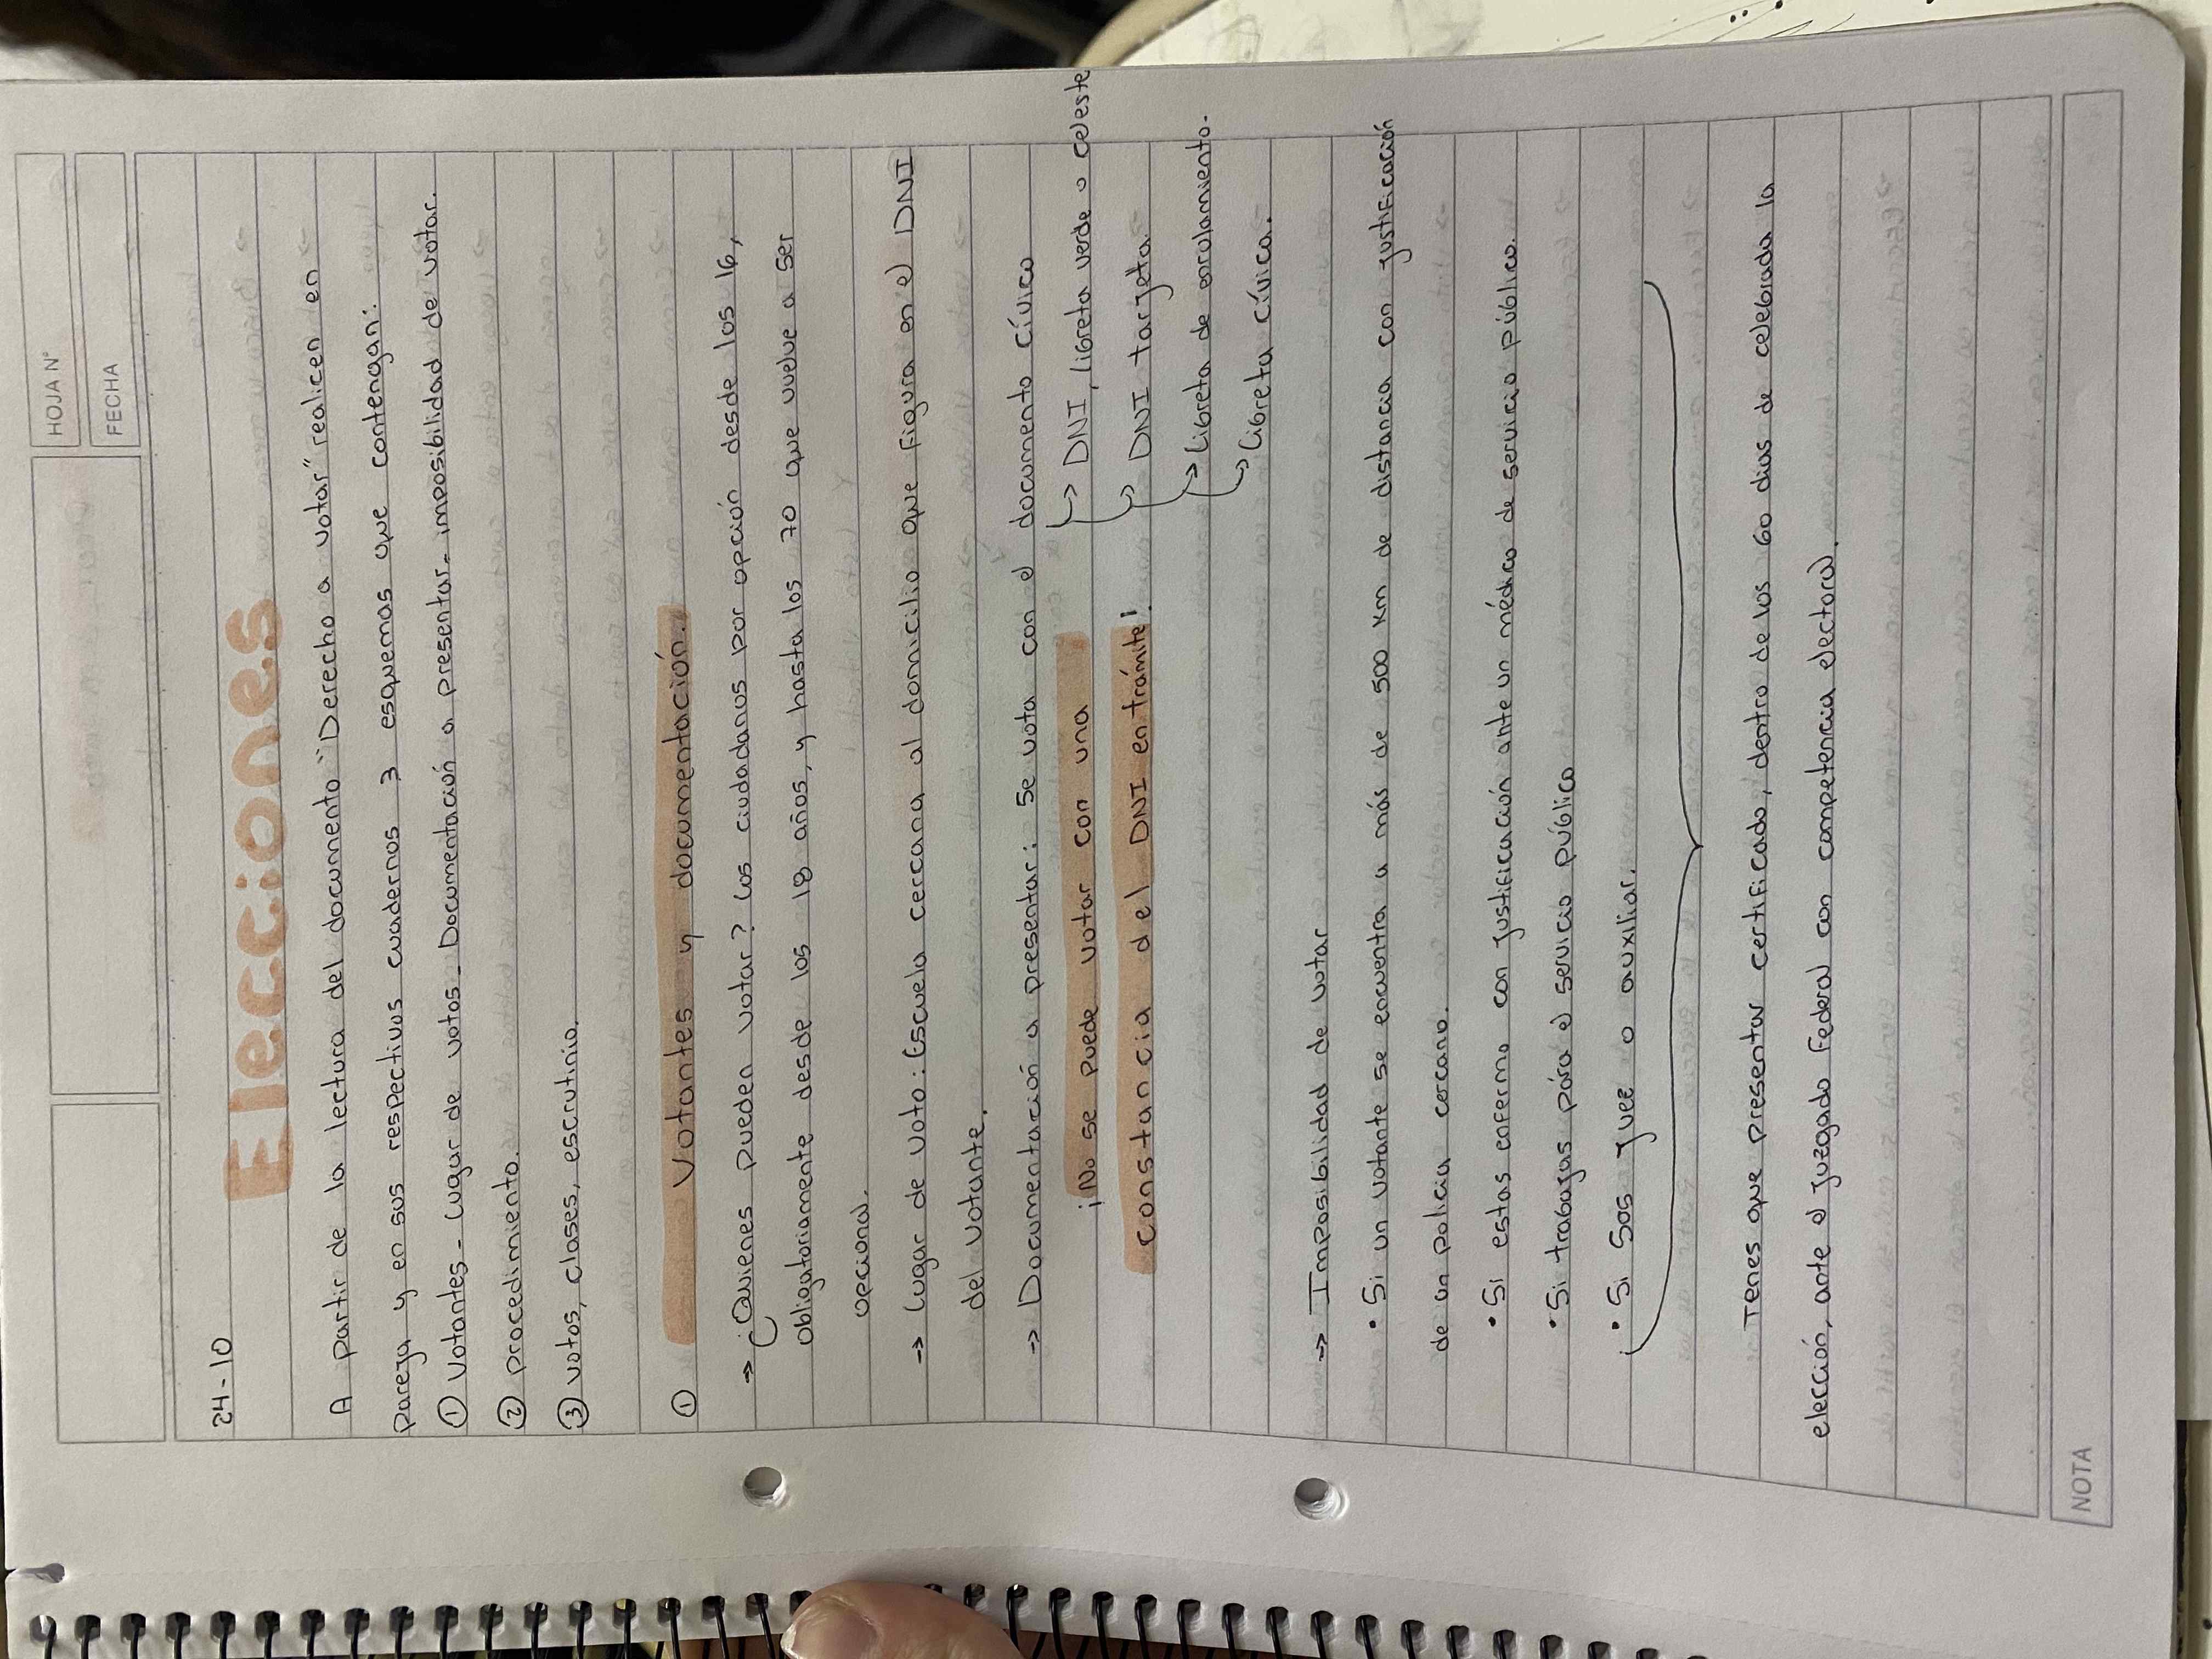 HOJA N°
FECHA
24-10
Elecciones
A partir de la lectura del documento "Derecho a votar" realicen en
pareja y en sus respectivos cuadernos 3 esquemas que contengan:
① Votantes - Lugar de votos - Documentación a presentar - imposibilidad de votar.
② procedimiento.
③ votos, clases, escrutinio.
① Votantes y documentación.
→ ¿Quienes pueden votar? Los ciudadanos por opción desde los 16,
obligatoriamente desde los 18 años, y hasta los 70 que vuelve a ser
opcional.
→ Lugar de voto: Escuela cercana al domicilio que figura en el DNI
del votante.
→ Documentación a presentar: Se vota con el documento cívico
¡No se puede votar con una
constancia del DNI en trámite!
→ DNI, libreta verde o celeste
→ DNI tarjeta.
→ Libreta de enrolamiento.
→ Libreta cívica.
→ Imposibilidad de votar
• Si un votante se encuentra a más de 500 km de distancia con justificación
de un policia cercano.
• Si estas enfermo con justificación ante un médico de servicio público.
• Si trabajas para el servicio público
• Si sos juez o auxiliar.
Tenes que presentar certificado, dentro de los 60 dias de celebrada la
elección, ante el juzgado Federal con competencia electoral.
NOTA